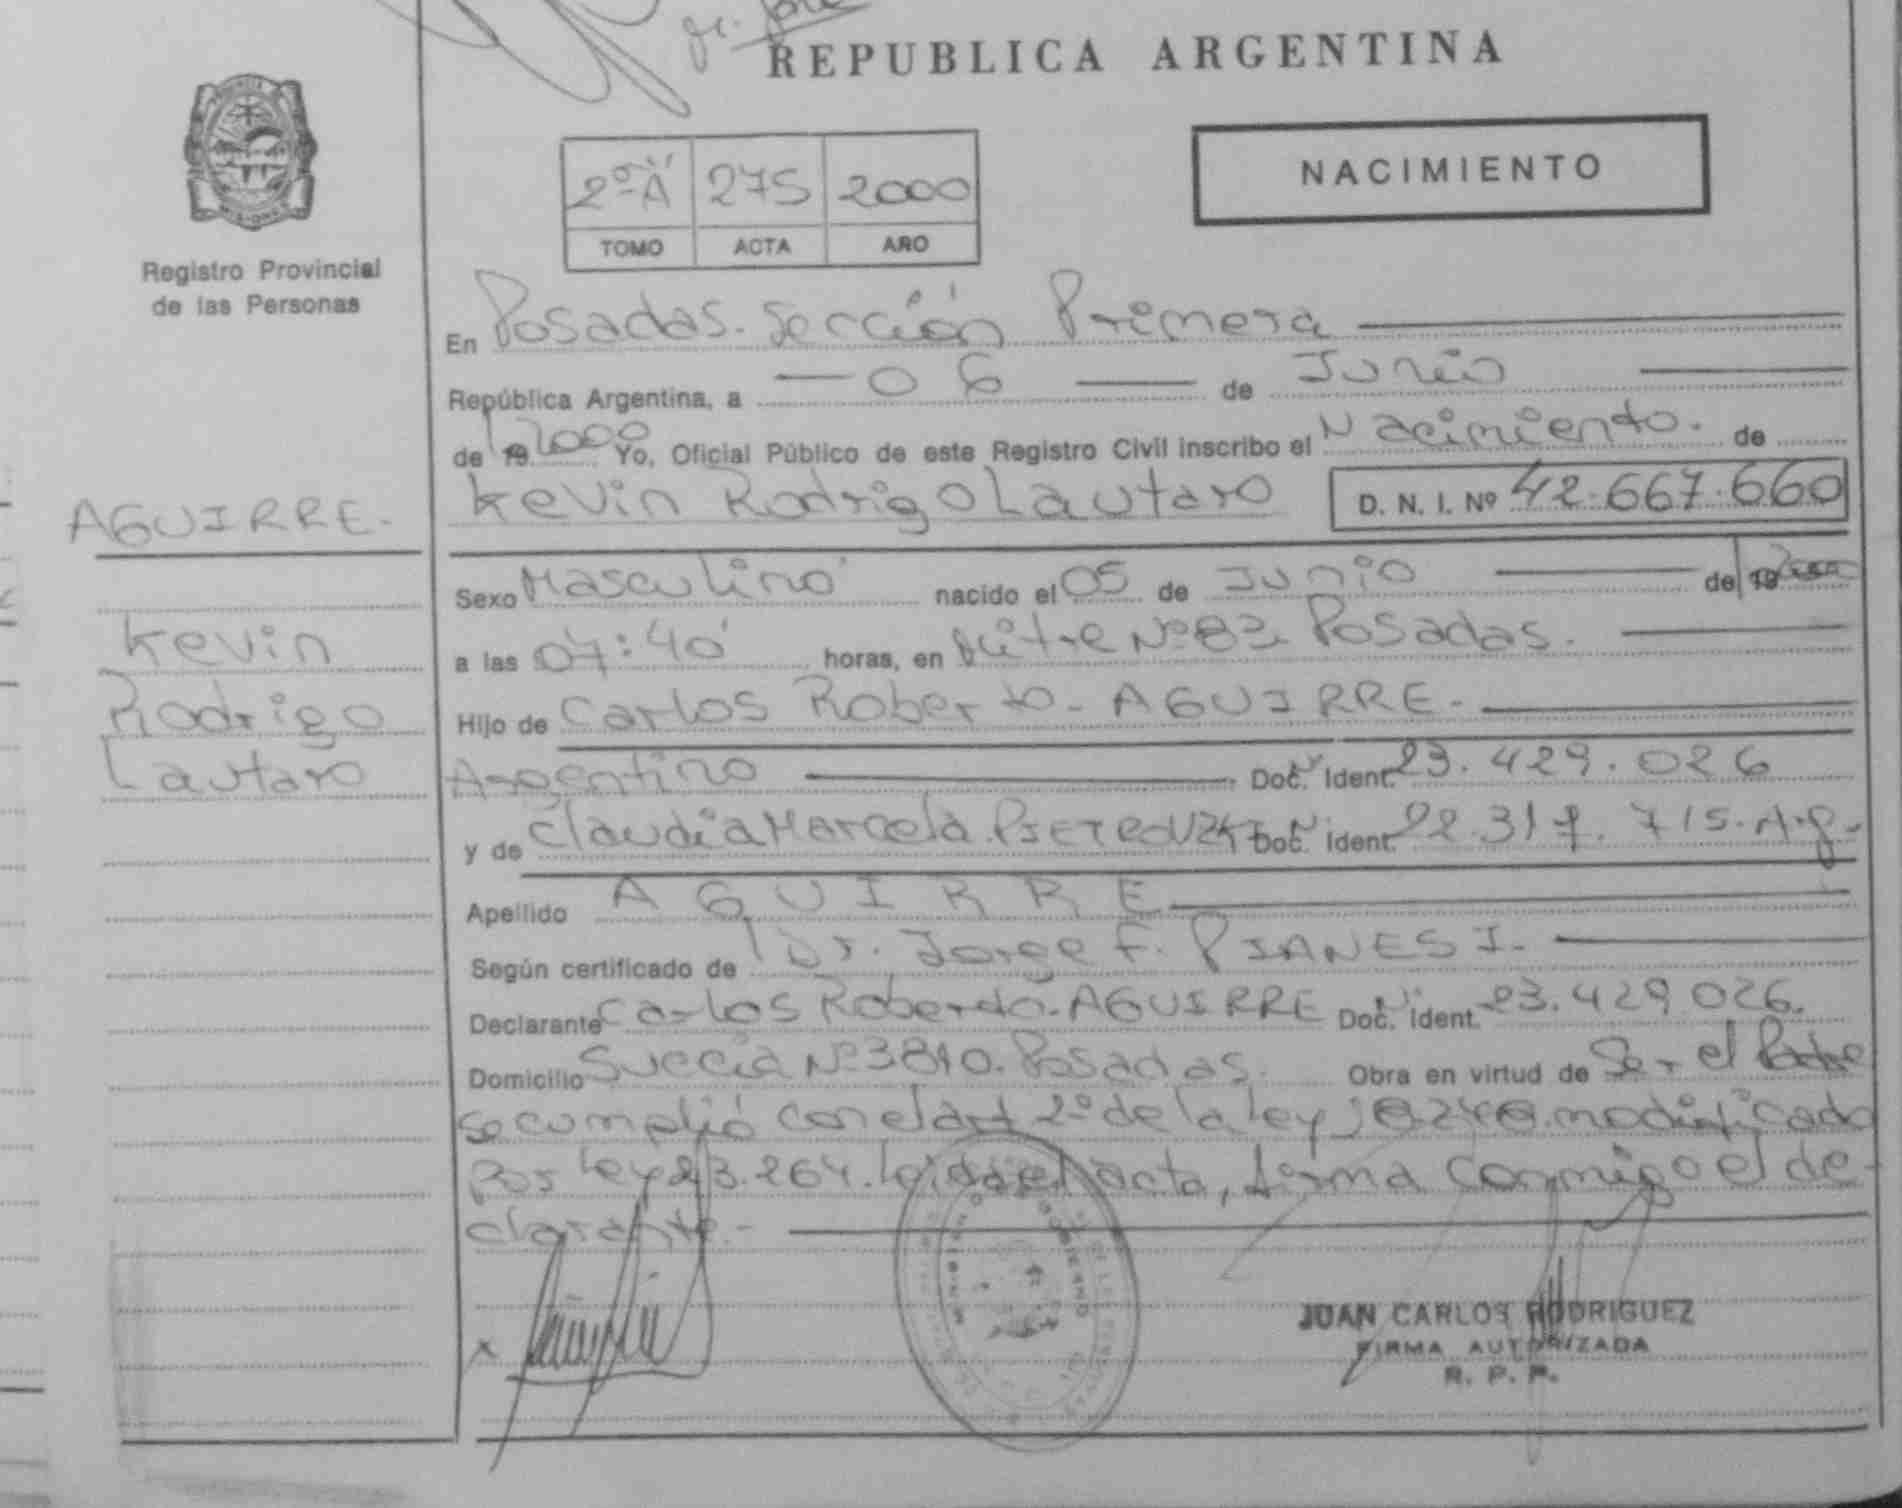 REPUBLICA ARGENTINA
PROVINCIA
MISIONES
Registro Provincial
de las Personas
NACIMIENTO
2º "A" 275 2000
TOMO ACTA AÑO
En Posadas. Sección Primera
República Argentina, a 06 de Junio
de 19 2000 Yo, Oficial Público de este Registro Civil inscribo el Nacimiento. de
Kevin Rodrigo Lautaro D. N. I. Nº 42.667.660
AGUIRRE.
Kevin
Rodrigo
Lautaro
Sexo Masculino nacido el 05 de Junio de 19 2000
a las 07:40 horas, en Mitre Nº 83 Posadas.
Hijo de Carlos Roberto. AGUIRRE.
Argentino Doc. Ident. 23.429.026
y de Claudia Marcela Doc. Ident. 22.317.715. Ag.
Apellido AGUIRRE
Según certificado de Dr. Jorge F. PIANESI.
Declarante Carlos Roberto. AGUIRRE Doc. Ident. 23.429.026.
Domicilio Succia Nº 3810. Posadas. Obra en virtud de Ser el Padre
se cumplió con el art 2º de la ley modificado
por ley 23.264. leída el acta, firma conmigo el de-
clarante.-
x
JUAN CARLOS RODRIGUEZ
FIRMA AUTORIZADA
R. P. P.